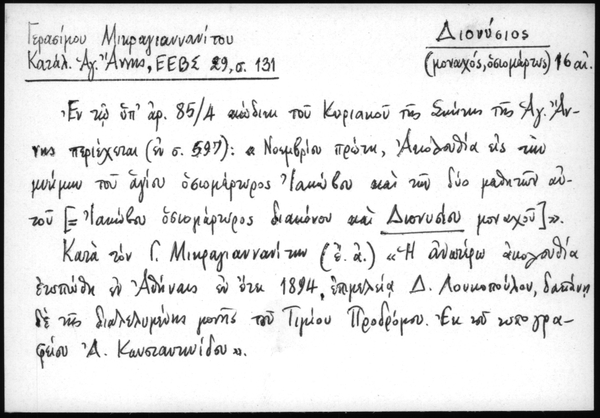 Γερασίμου Μικραγιαννανίτου
Κατάλ. Ἁγ. Ἄννης, ΕΕΒΣ 29, σ. 131
Διονύσιος
(μοναχός, ὁσιομάρτυς) 16 αἰ.
Ἐν τῷ ὑπ' ἀρ. 85/4 κώδικι τοῦ Κυριακοῦ τῆς Σκήτης τῆς Ἁγ. Ἄν-
νης περιέχεται (ἐν σ. 597): « Νοεμβρίου πρώτη, Ἀκολουθία εἰς τὴν
μνήμην τοῦ ἁγίου ὁσιομάρτυρος Ἰακώβου καὶ τῶν δύο μαθητῶν αὐ-
τοῦ [= Ἰακώβου ὁσιομάρτυρος διακόνου καὶ Διονυσίου μοναχοῦ]».
Κατὰ τὸν Γ. Μικραγιαννανίτην (ἔ. ἀ.) «Ἡ ἀνωτέρω ἀκολουθία
ἐτυπώθη ἐν Ἀθήναις ἐν ἔτει 1894, ἐπιμελείᾳ Δ. Λουκοπούλου, δαπάνῃ
δὲ τῆς διαλελυμένης μονῆς τοῦ Τιμίου Προδρόμου. Ἐκ τοῦ τυπογρα-
φείου Ἀ. Κωνσταντινίδου».